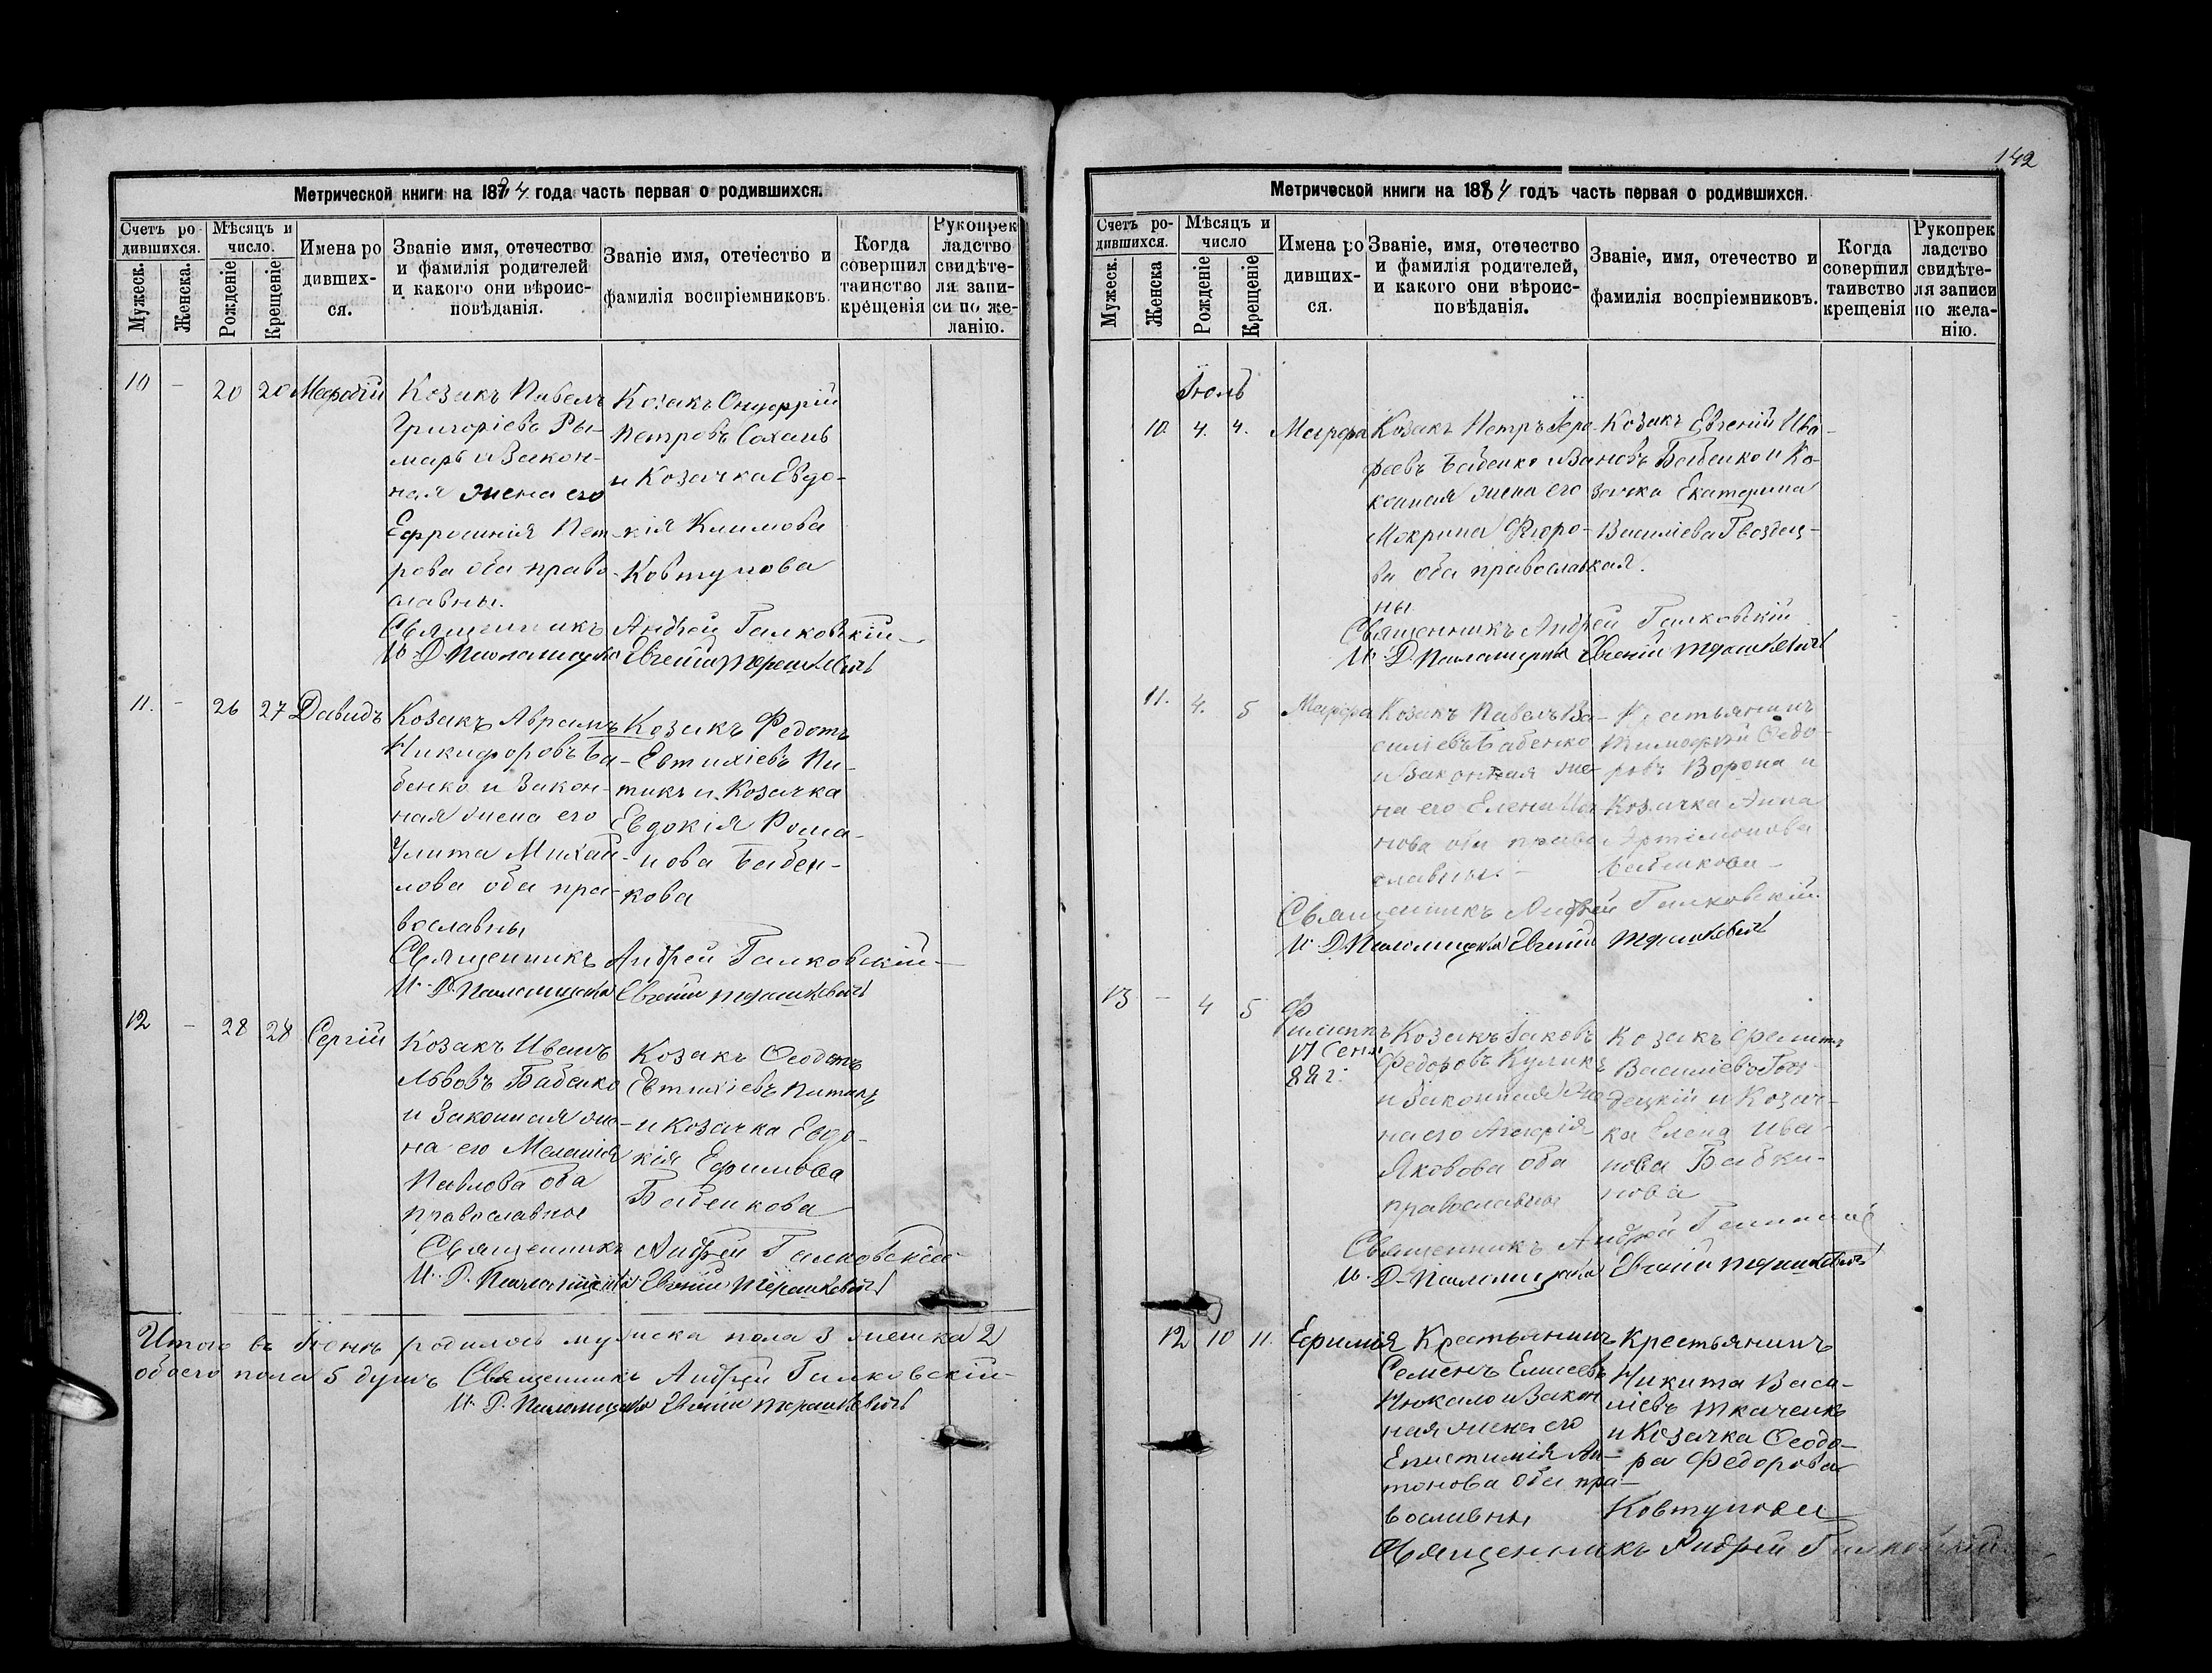 Метрической книги на 1884 года часть первая о родившихся.
Счетъ ро-дившихся.
Мужеск.
Женска.
Мѣсяцъ и число.
Рожденіе
Крещеніе
Имена родивших-ся.
Званіе имя, отечество и фамилія родителей и какого они вѣроис-повѣданія.
Званіе имя, отечество и фамилія воспріемниковъ.
Когда совершил таинство крещенія
Рукоприкладство свидѣте-ля запи-си по же-ланію.
10 - 20 20 Меѳодій
Козакъ Павелъ
Григоріевъ Ры-
марь и Закон-
ная жена его
Ефросинія Пет-
рова оба право-
славны.
Козакъ Онуфрій
Петровъ Сохань
и Козачка Евдо-
кія Климова
Ковтунова
Священникъ Андрей Галковскій
И. Д. Псаломщика Евгеній Терашкевичъ
11. - 26 27 Давидъ
Козакъ Аврамъ
Никифоровъ Ба-
бенко и Закон-
ная жена его
Улита Михай-
лова оба пра-
вославны
Козакъ Федотъ
Евтихіевъ Пи-
тикъ и Козачка
Евдокія Рома-
нова Бабен-
кова
Священникъ Андрей Галковскій
И. Д. Псаломщика Евгеній Терашкевичъ
12 - 28 28 Сергій
Козакъ Иванъ
Львовъ Бабенко
и Законная же-
на его Меланія
Павлова оба
православные
Козакъ Ѳеодотъ
Евтихіевъ Питикъ
и Козачка Евдо-
кія Ефимова
Бабенкова
Священникъ Андрей Галковскій
И. Д. Псаломщика Евгеній Терашкевичъ
Итого въ Іюнѣ родилось мужеска пола 3 женска 2
обоего пола 5 душъ Священникъ Андрей Галковскій
И. Д. Псаломщика Евгеній Терашкевичъ
142
Метрической книги на 1884 годъ часть первая о родившихся.
Счетъ ро-дившихся.
Мужеск.
Женска
Мѣсяцъ и число
Рожденіе
Крещеніе
Имена родивших-ся.
Званіе, имя, отечество и фамилія родителей, и какого они вѣроис-повѣданія.
Званіе, имя, отечество и фамилія воспріемниковъ.
Когда совершил таивство крещенія
Рукоприкладство свидѣте-ля записи по жела-нію.
Іюль
10. 4. 4. Марѳа
Козакъ Петръ
Бабенко и За-
конная жена его
Мокрина Ѳедоро-
ва оба православ-
ны
Козакъ Евгеній Ива-
новъ Бабенко и Ко-
зачка Екатерина
Василіева Гвоздец-
кая.
Священникъ Андрей Галковскій
И. Д. Псаломщика Евгеній Терашкевичъ
11. 4. 5 Марѳа
Козакъ Павелъ Ва-
силіевъ Бабенко
и Законная же-
на его Елена Ива-
нова оба право-
славны.
Крестьянинъ
Тимофей Ѳедо-
ровъ Ворона и
Козачка Анна
Артемонова
Бабенкова
Священникъ Андрей Галковскій
И. Д. Псаломщика Евгеній Терашкевичъ
13 - 4 5 Филиппъ
Козакъ Іаковъ
Федоровъ Куликъ
и Законная же-
на его
Яковова оба
православны
Козакъ
Василіевъ Гвоз-
децкій и Козач-
ка Елена Ива-
нова
Священникъ Андрей Галковскій
И. Д. Псаломщика Евгеній Терашкевичъ
12 10 11. Ефимія
Крестьянинъ
Семенъ Елисеевъ
и Закон-
ная жена его
Епистимія Ан-
тонова оба пра-
вославны
Крестьянинъ
Никита Васи-
ліевъ Ткаченко
и Козачка Ѳеодо-
ра Федорова
Ковтунова
Священникъ Андрей Галковскій